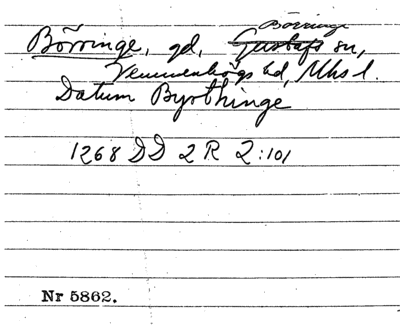 Börringe
Börringe, gd, Gustafs sn,
Vemmenhögs hd, Mhs l.
Datum Byrthinge
1268 DD 2 R 2:101
Nr 5862.